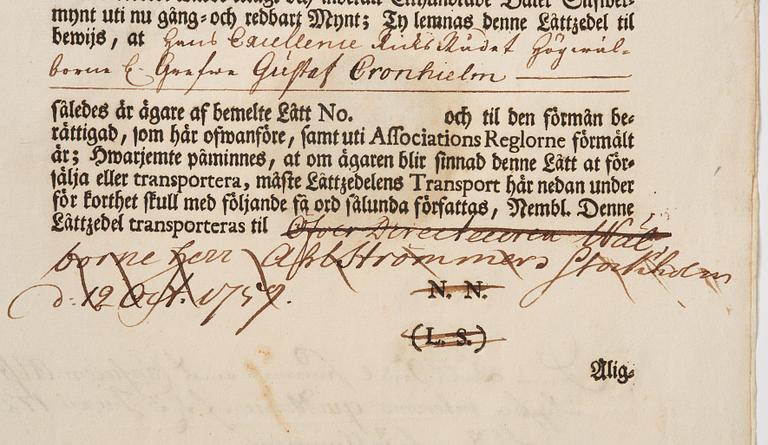 mynt uti nu gång- och redbart Mynt; Ty lemnas denne Låttzedel til
bewijs, at Hans Excellence Riks Rådet Högwäl-
borne H. Grefwe Gustaf Cronhielm
således är ägare af bemelte Lått No. och til den förmån be-
rättigad, som här ofwanföre, samt uti Associations Reglorne förmält
är; Hwarjemte påminnes, at om ägaren blir sinnad denne Lått at för-
sälja eller transportera, måste Låttzedelens Transport här nedan under
för korthet skull med följande få ord sålunda författas, Nembl. Denne
Låttzedel transporteras til Öfver Directeuren Wäl
borne Herr Ahlströmmer Stockholm
d: 12 Oct. 1759.
N. N.
(L. S.)
Alig-